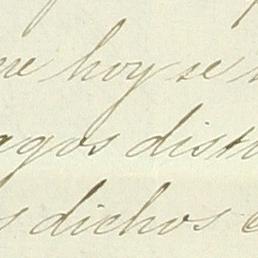 ue hoy se
agos dist
s dichos